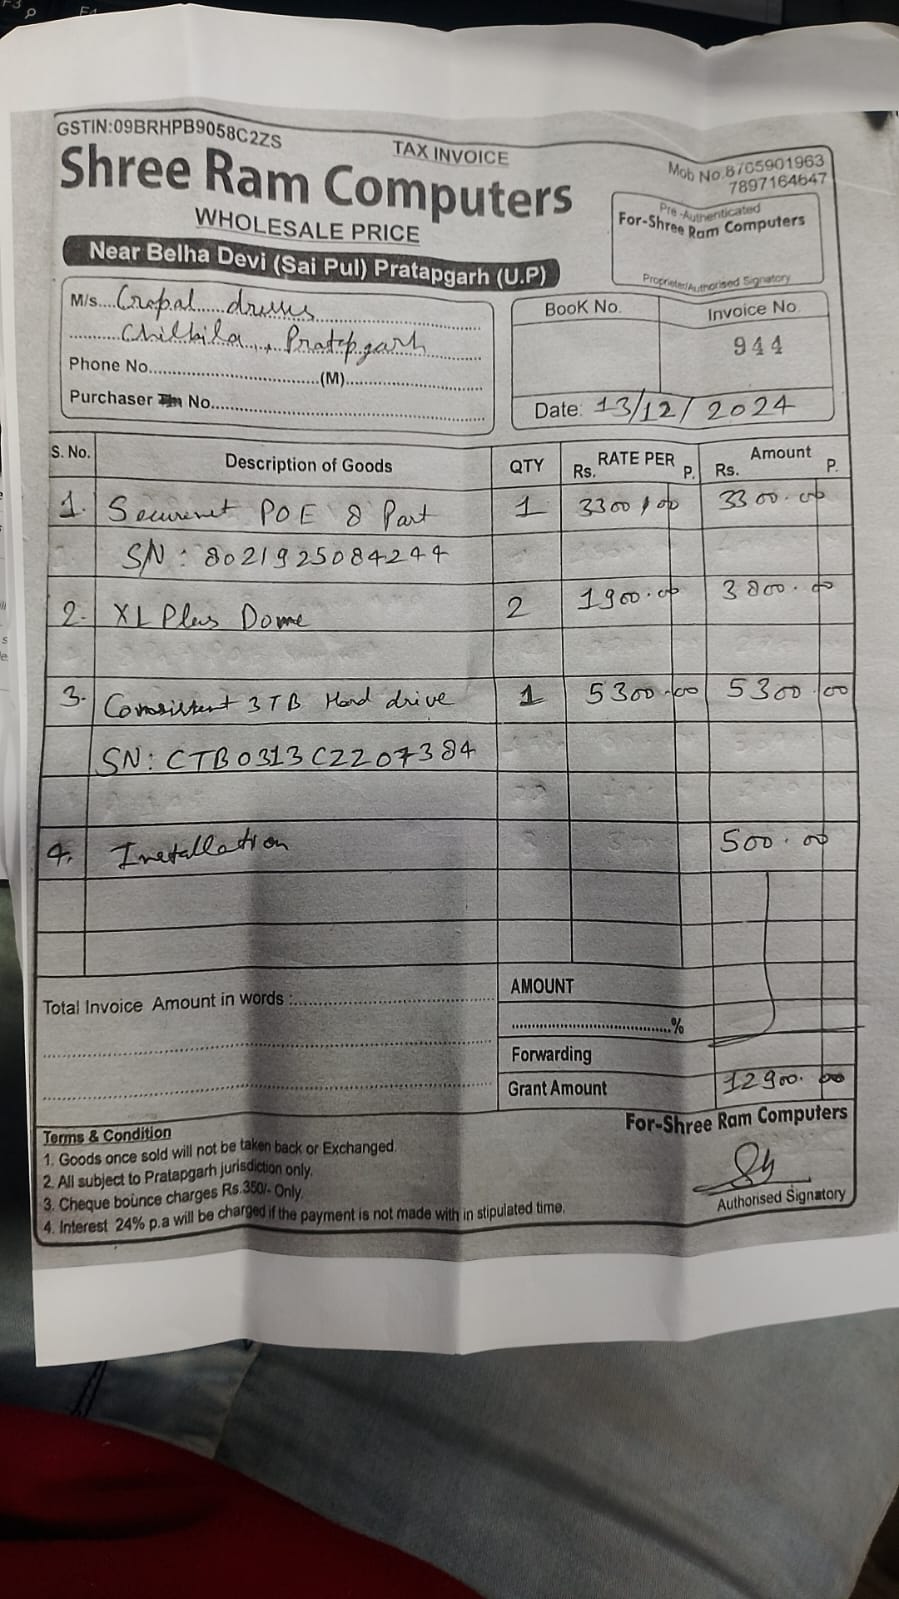 GSTIN:09BRHPB9058C2ZS
TAX INVOICE
Mob No.8765901963
7897164647
Shree Ram Computers
WHOLESALE PRICE
Near Belha Devi (Sai Pul) Pratapgarh (U.P)
Pre-Authenticated
For-Shree Ram Computers
Proprietor/Authorised Signatory
M/s.... Gopal dresses
Chilbila, Pratapgarh
Phone No..............................(M)........................
Purchaser No..............................
BooK No.
Invoice No.
944
Date: 13/12/2024
S. No. Description of Goods QTY Rs. RATE PER P. Rs. Amount P.
1. Securenet POE 8 Port 1 3300.00 3300.00
S/N: 8021925084244
2. XL Plus Dome 2 1900.00 3800.00
3. Consistent 3TB Hard drive 1 5300.00 5300.00
SN: CTB0313C2207384
4. Installation 500.00
Total Invoice Amount in words :..............................
AMOUNT
..............................%
Forwarding
Grant Amount 12900.00
For-Shree Ram Computers
Authorised Signatory
Terms & Condition
1. Goods once sold will not be taken back or Exchanged.
2. All subject to Pratapgarh jurisdiction only.
3. Cheque bounce charges Rs.350/- Only.
4. Interest 24% p.a will be charged if the payment is not made with in stipulated time.